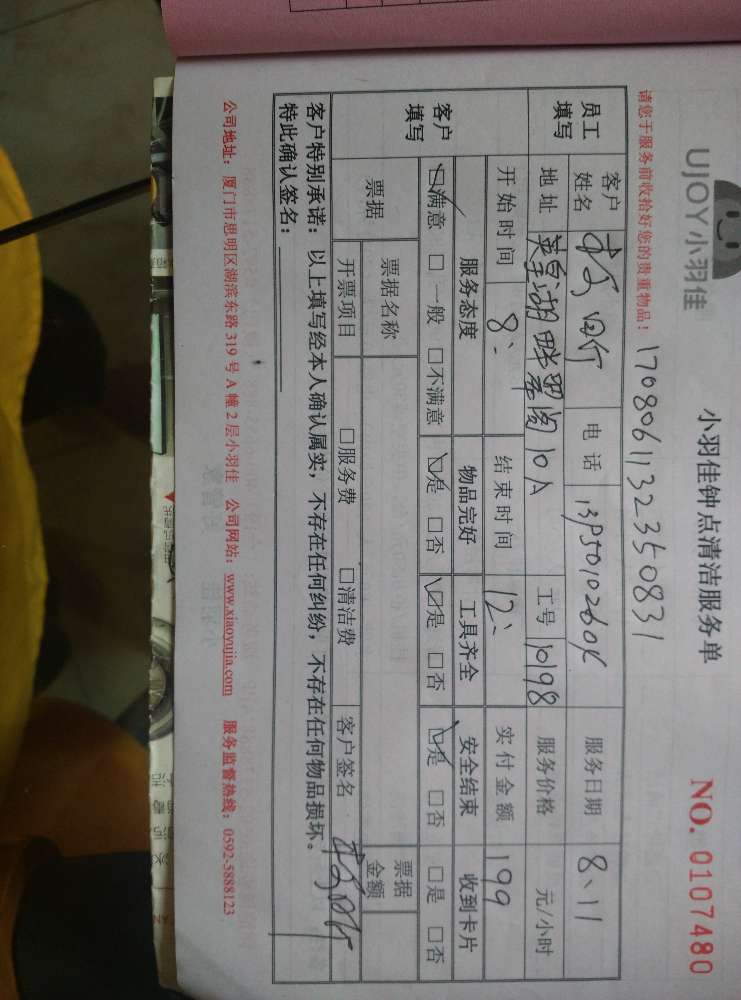 UJOY小羽佳
小羽佳钟点清洁服务单
NO. 0107480
请您于服务前收拾好您的贵重物品！
1708061132350831
员工填写
客户姓名
电话
服务日期 8、11
地址 湖畔 10A
工号 10198
服务价格 元/小时
客户填写
开始时间 8：
结束时间 12：
实付金额 199
服务态度 物品完好 工具齐全 安全结束 收到卡片
☑满意 □一般 □不满意 ☑是 □否 ☑是 □否 ☑是 □否 □是 □否
票据
票据名称
票据金额
开票项目 □服务费 □清洁费
客户特别承诺：以上填写经本人确认属实，不存在任何纠纷，不存在任何物品损坏。
特此确认签名：
客户签名
公司地址：厦门市思明区湖滨东路 319 号 A 幢 2 层小羽佳 公司网站：www.xiaoyujia.com 服务监督热线：0592-5888123